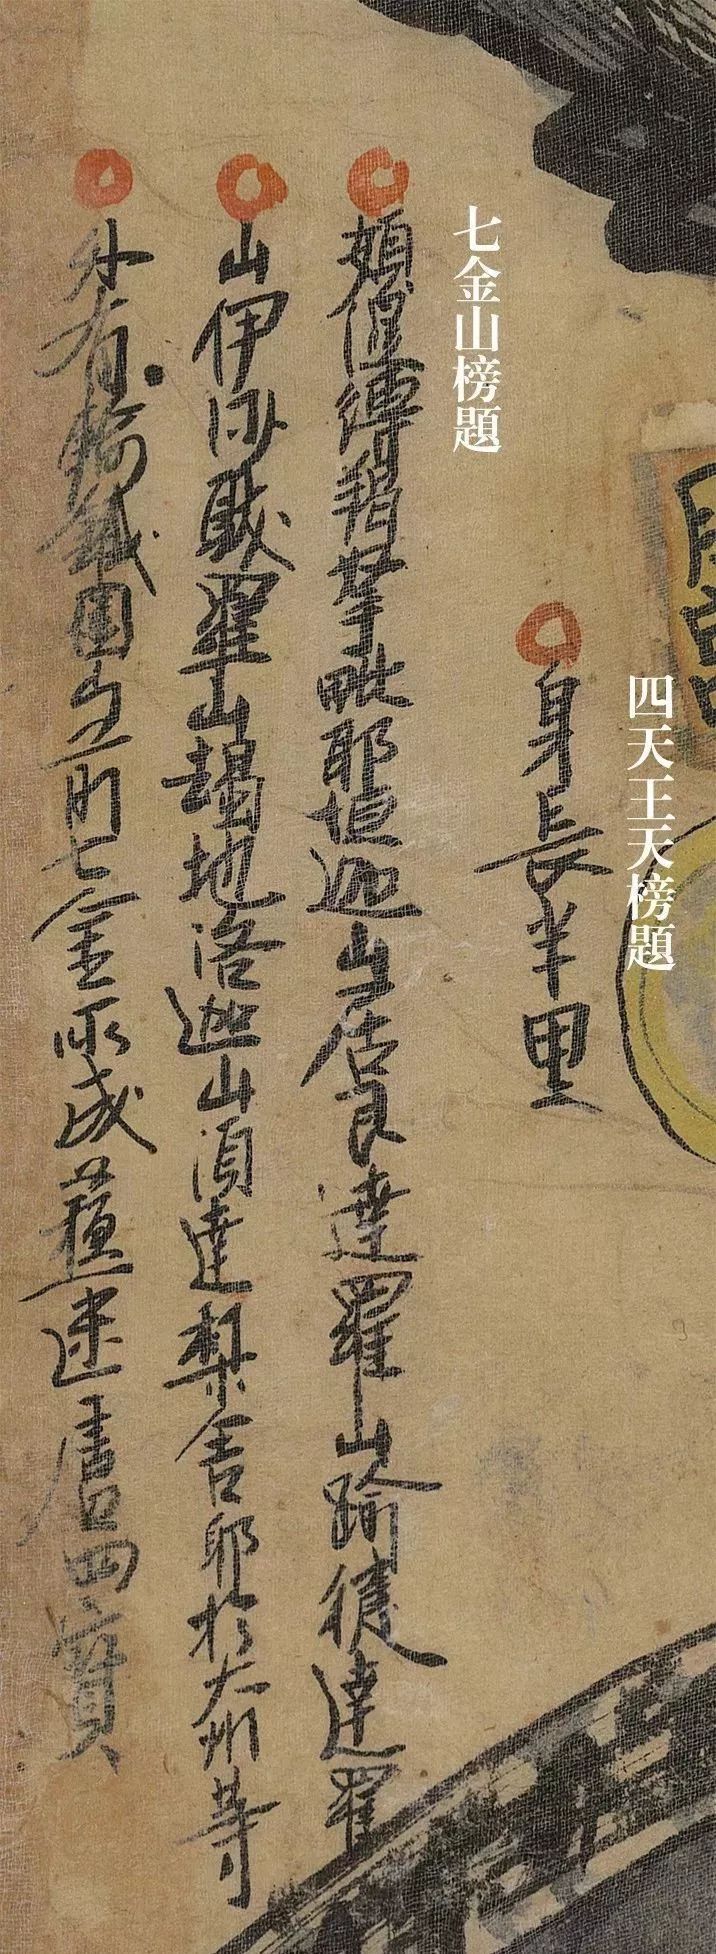 四天王天榜題
身長半里
七金山榜題
頞湿縛羯拏毗耶怛迦山居良達羅山踰犍達羅
山伊沙馱羅山朅地洛迦山須達梨舍耶於大州等
外有輪鐵圍山前七金所成蘓迷唐四寶